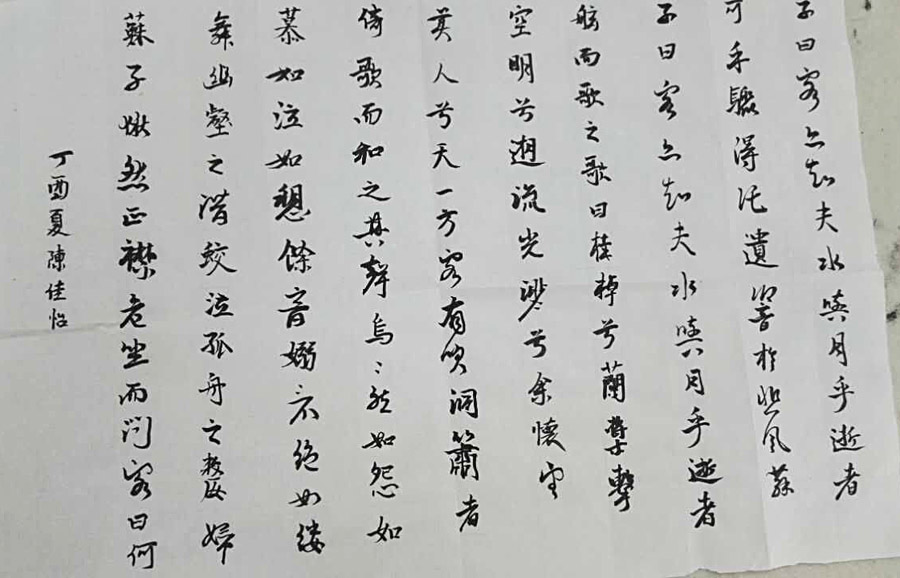 子曰客亦知夫水與月乎逝者
可乎驟得託遺響於悲風蘇
子曰客亦知夫水與月乎逝者
舷而歌之歌曰桂棹兮蘭槳擊
空明兮遡流光渺兮余懷望
美人兮天一方客有吹洞簫者
倚歌而和之其聲烏〻然如怨如
慕如泣如愬餘音嫋不絕如縷
舞幽壑之潛蛟泣孤舟之嫠婦
蘇子愀然正襟危坐而問客曰何
丁酉夏陳佳怡